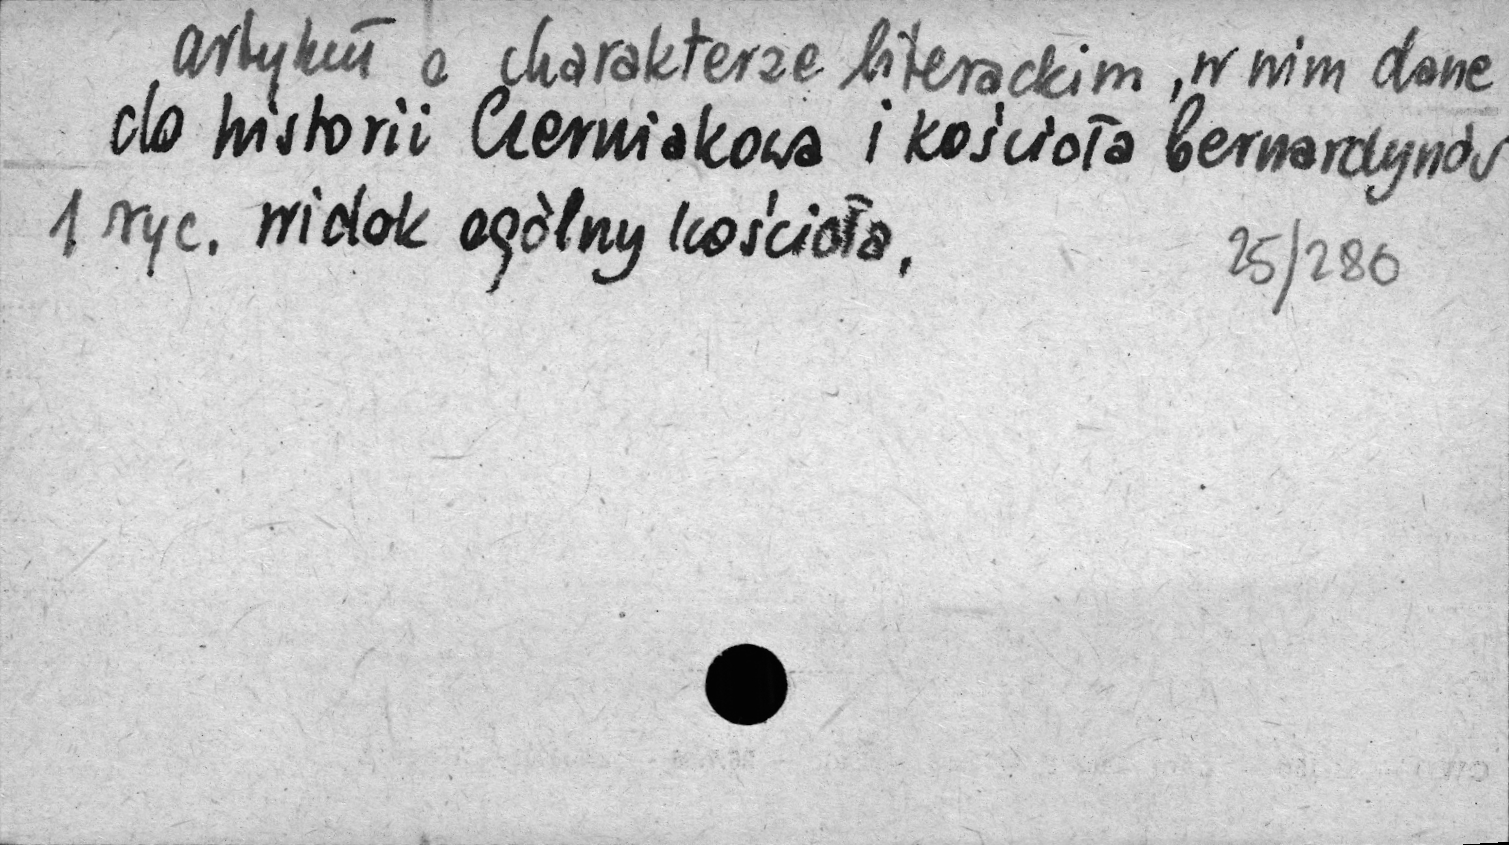 artykuł o charakterze literackim, w nim dane
do historii Czerniakowa i kościoła bernardynów
1 ryc. widok ogólny kościoła,
25/286